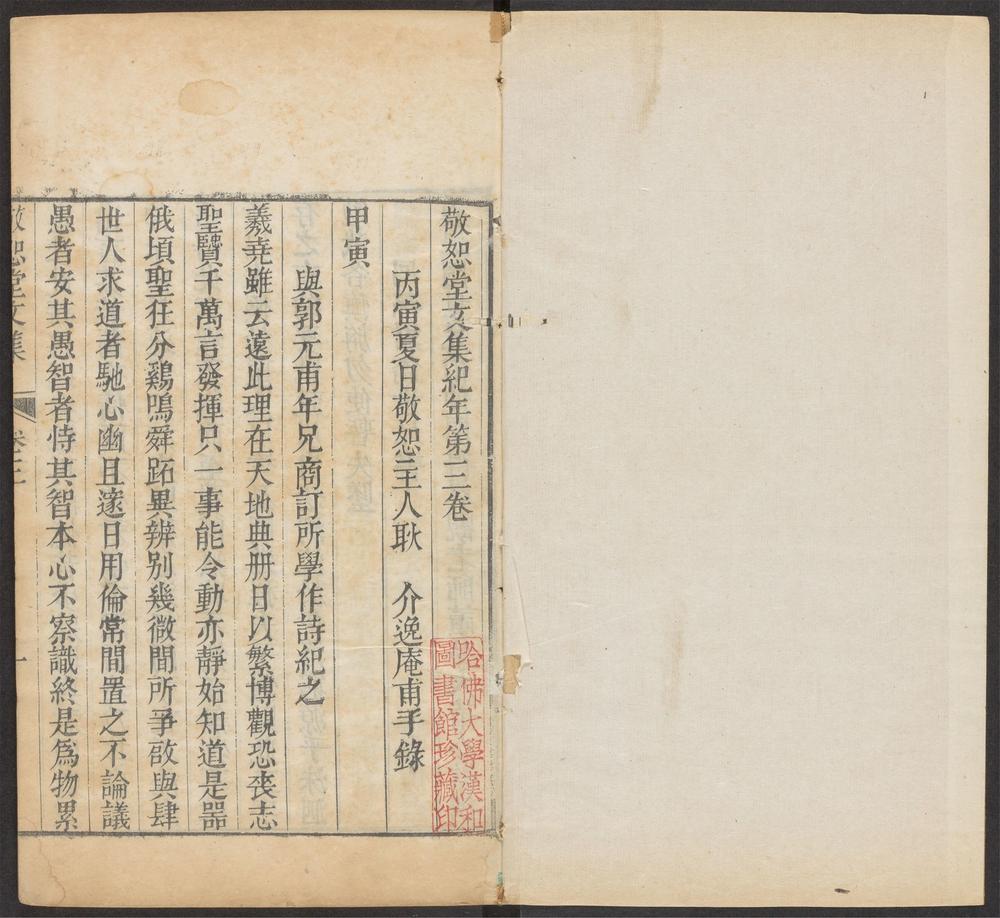 敬恕堂文集紀年第三卷
丙寅夏日敬恕主人耿 介逸庵甫手錄
甲寅
與郭元甫年兄商訂所學作詩紀之
羲堯雖云遠此理在天地典册日以繁博觀恐喪志
聖賢千萬言發揮只一事能令動亦靜始知道是器
俄頃聖狂分鷄鳴舜跖異辨别幾微間所爭敬與肆
世人求道者馳心幽且邃日用倫常間置之不論議
愚者安其愚智者恃其智本心不察識終是爲物累
敬恕堂文集 卷三 一
哈佛大學漢和
圖書館珍藏印